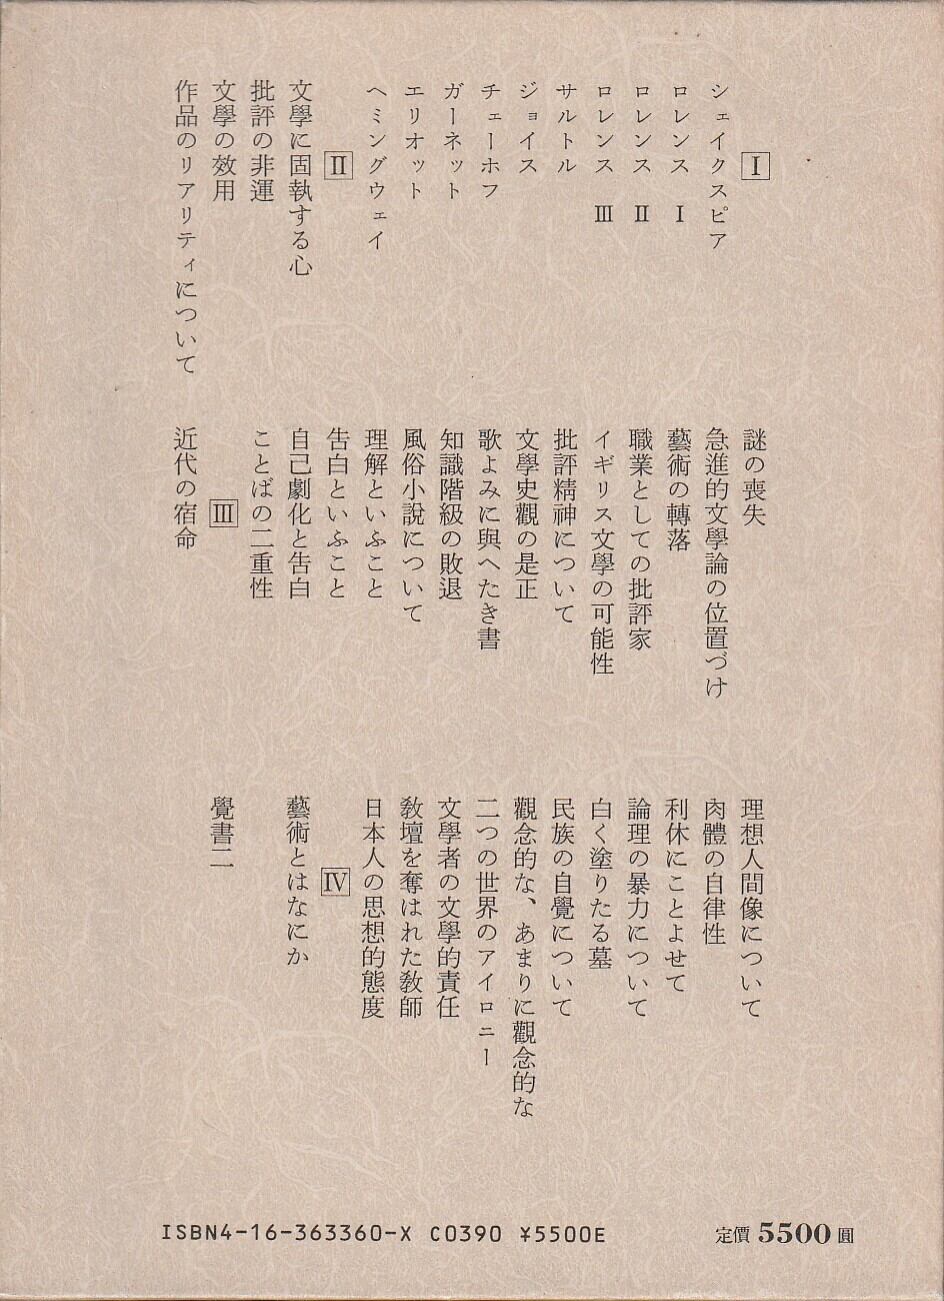 Ⅰ
シェイクスピア
ロレンス Ⅰ
ロレンス Ⅱ
ロレンス Ⅲ
サルトル
ジョイス
チェーホフ
ガーネット
エリオット
ヘミングウェイ
Ⅱ
文學に固執する心
批評の非運
文學の效用
作品のリアリティについて
謎の喪失
急進的文學論の位置づけ
藝術の轉落
職業としての批評家
イギリス文學の可能性
批評精神について
文學史觀の是正
歌よみに與へたき書
知識階級の敗退
風俗小說について
理解といふこと
告白といふこと
自己劇化と告白
ことばの二重性
Ⅲ
近代の宿命
理想人間像について
肉體の自律性
利休にことよせて
論理の暴力について
白く塗りたる墓
民族の自覺について
觀念的な、あまりに觀念的な
二つの世界のアイロニー
文學者の文學的責任
敎壇を奪はれた敎師
日本人の思想的態度
Ⅳ
藝術とはなにか
覺書二
ISBN4-16-363360-X C0390 ¥5500E
定價 5500 圓